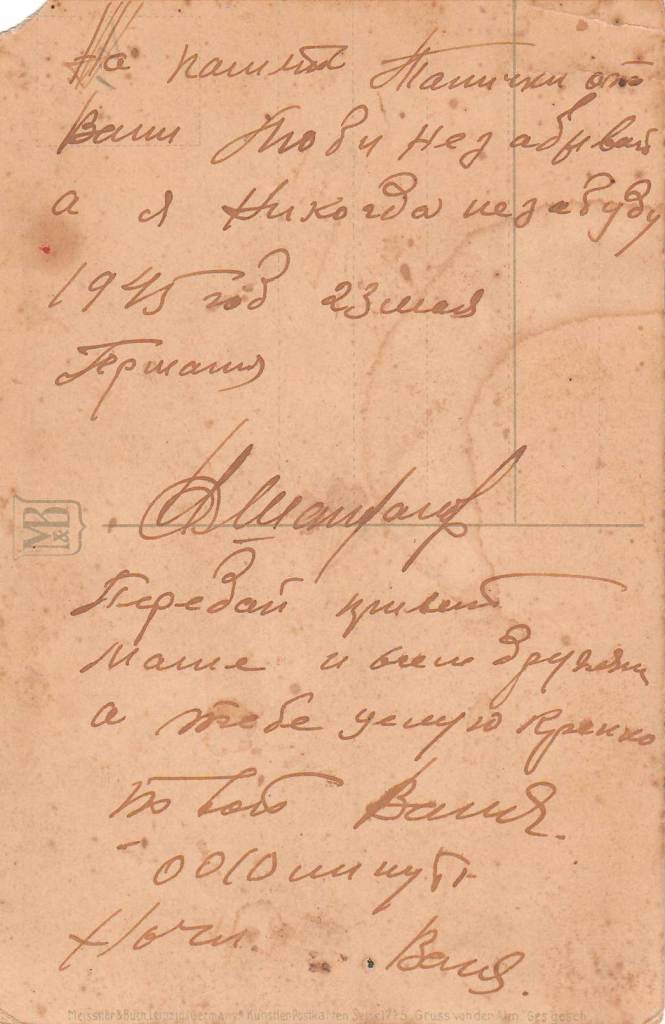 На память Танички от
Вани Люби незабывай
а я Никогда незабуду
1945 год 23 мая
Германия
M&B
Передай привет
Маше и всем друзям
а тебе целую крепко
твой Ваня.
00 10 минут
Ночи. Ваня.
Meissner & Buch, Leipzig (Germany) Künstler-Postkarten Serie "Gruss von der Alm." Ges. gesch.